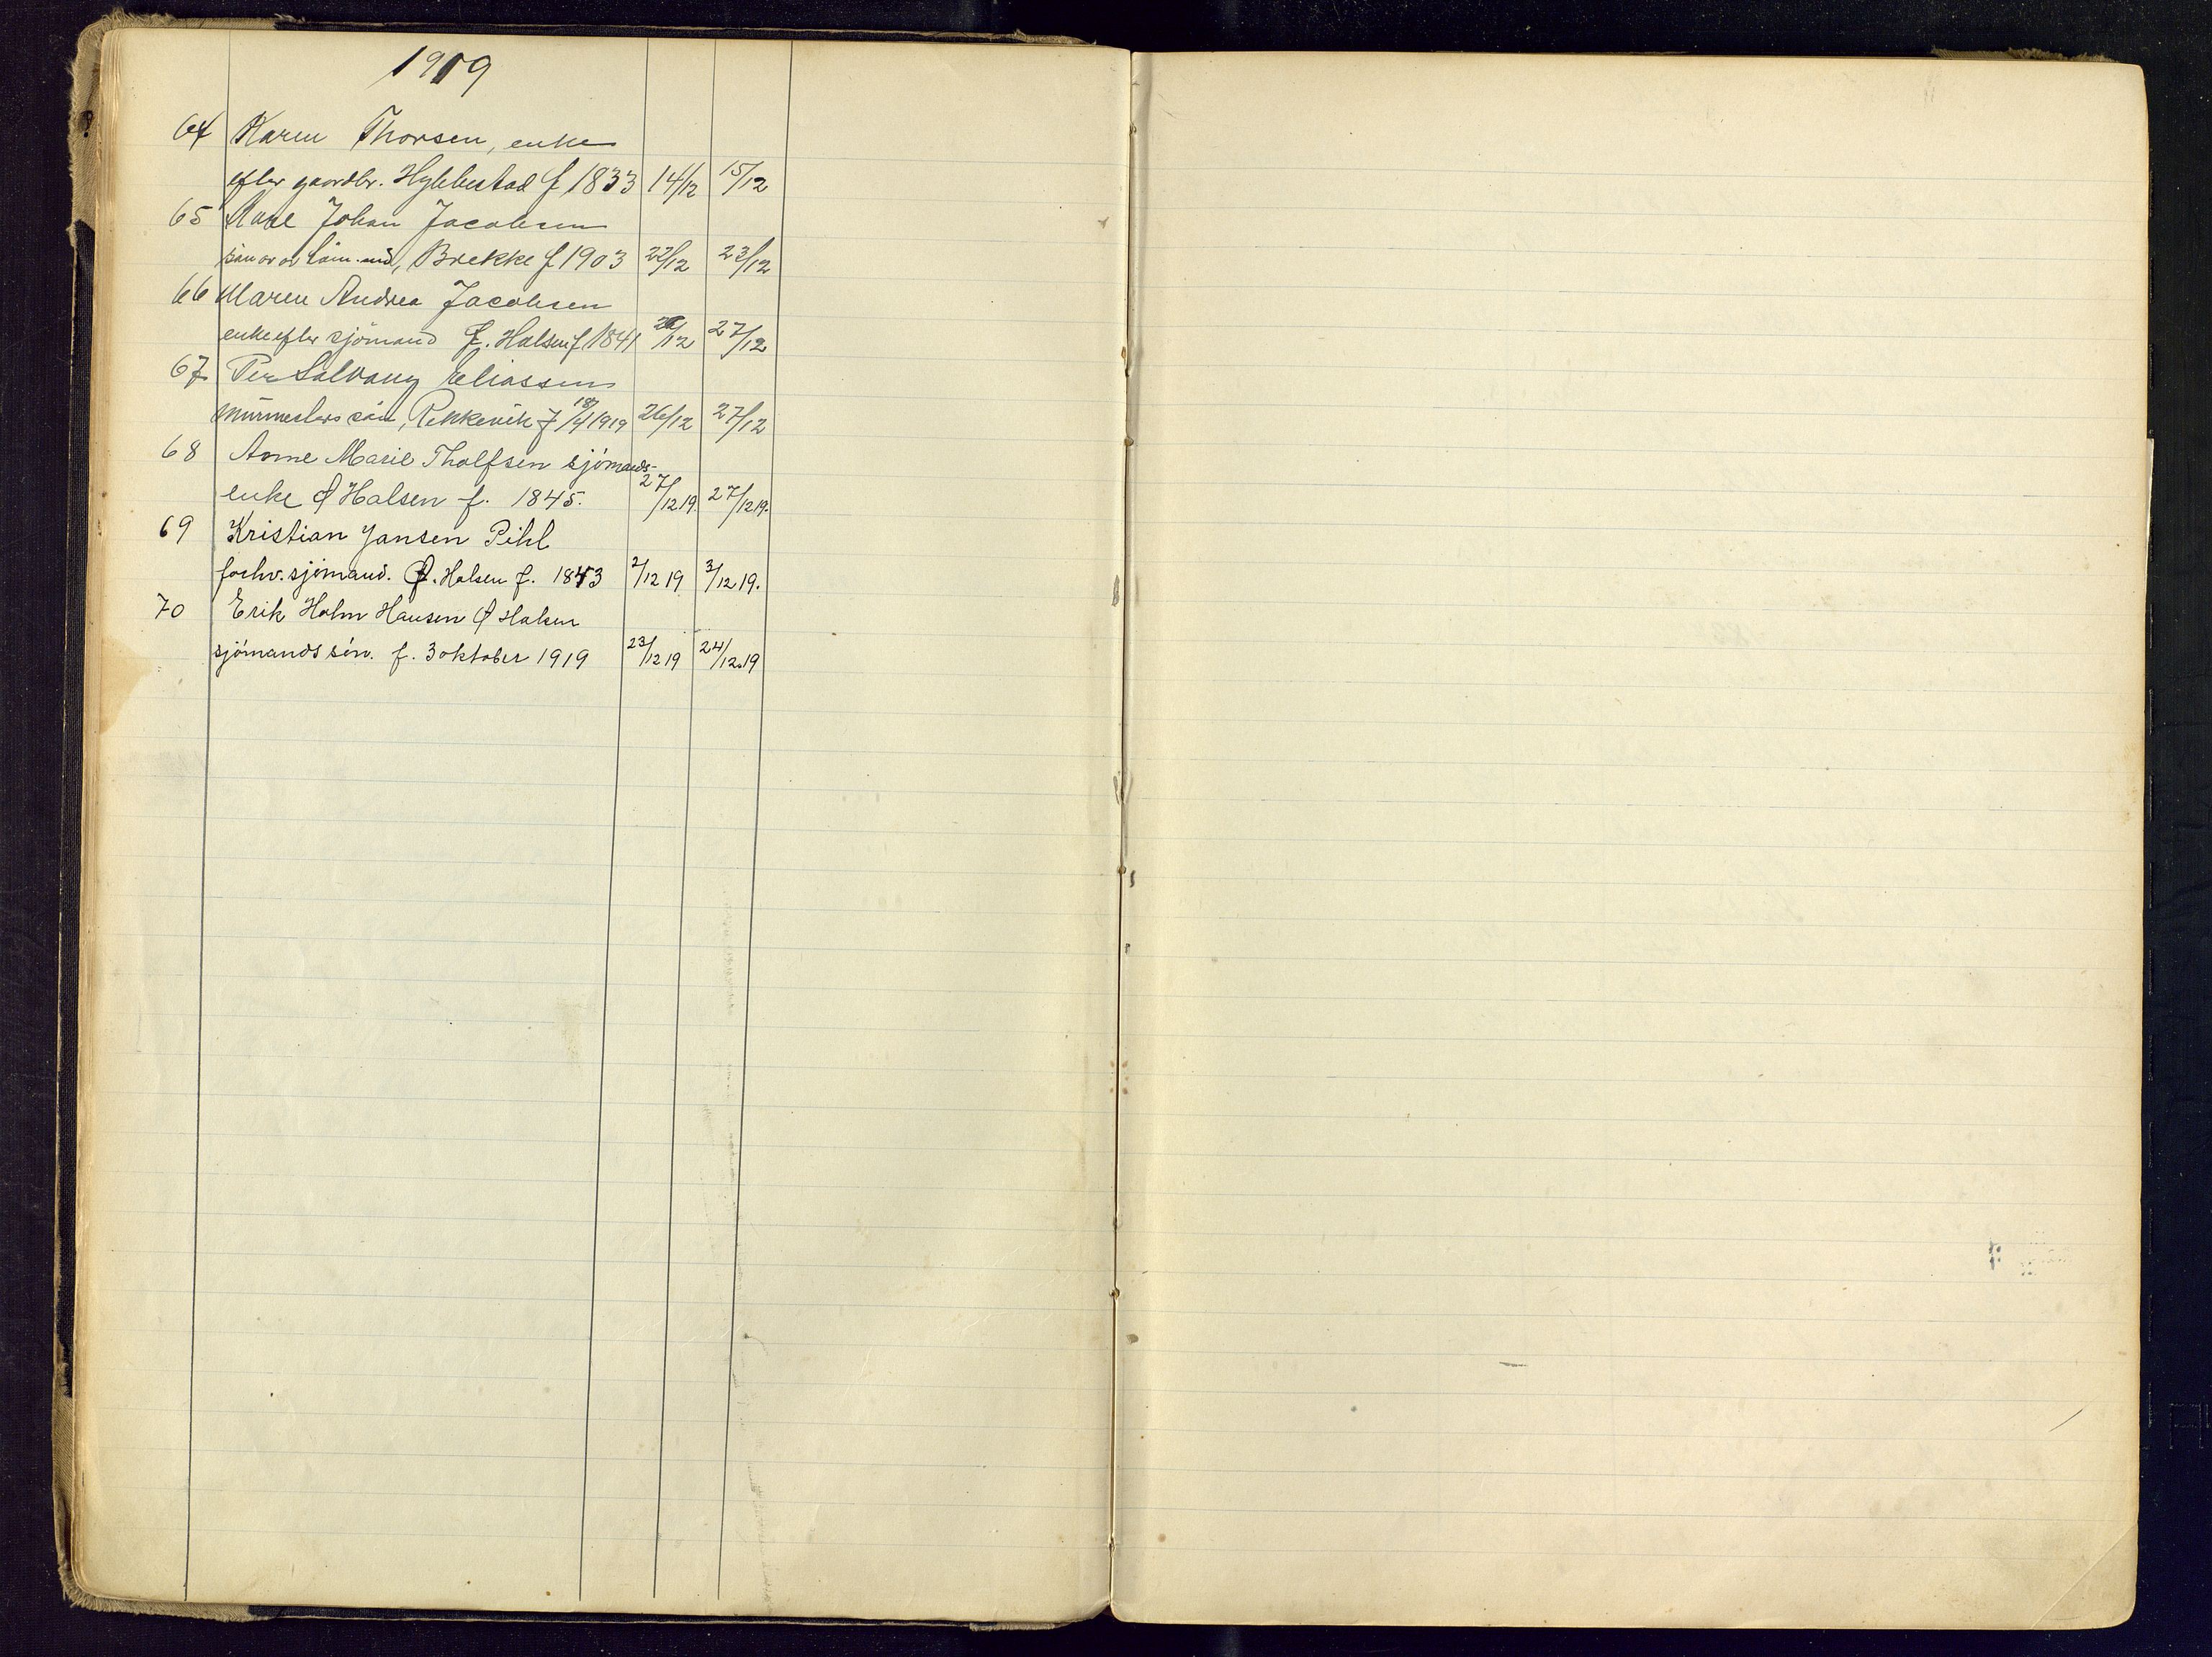 1919
64 Karen Thorsen, enke
efter gaardbr. Hybbestad f 1833 14/12 15/12
65 Karl Johan Jacobsen
søn av Brekke f 1903 22/12 23/12
66 Maren Andrea Jacobsen
enke efter sjømand Ø. Halsen f 1841 /12 27/12
67 Per Salvang Eliassen
murmesters søn, Rekkevik f 18/4 1919 26/12 27/12
68 Anne Marie Tholfsen sjømands-
enke Ø Halsen f. 1845. 27/12 19. 27/12 19.
69 Kristian Jansen Pihl
forhv. sjømand. Ø. Halsen f. 1843 2/12 19 3/12 19.
70 Erik Holm Hansen Ø Halsen
sjømands søn. f. 3 oktober 1919 23/12 19 24/12.19